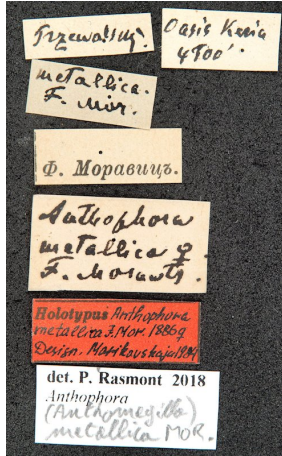 Przewalsky.
Oasis Keria
4500'.
metallica.
F. Mor.
Ф. Моравицъ.
Anthophora
metallica ♀.
F. Morawitz.
Holotypus Anthophora
metallica F. Mor 1886 ♀
Design. Marikovskaja 1994
det. P. Rasmont 2018
Anthophora
(Anthomegilla)
metallica MOR.